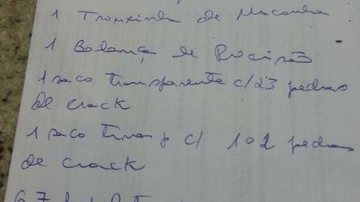 1 Trouxinha de Maconha
1 Balança de Precisão
1 saco transparente c/23 pedras
de crack
1 saco c/ 102 pedras
de crack